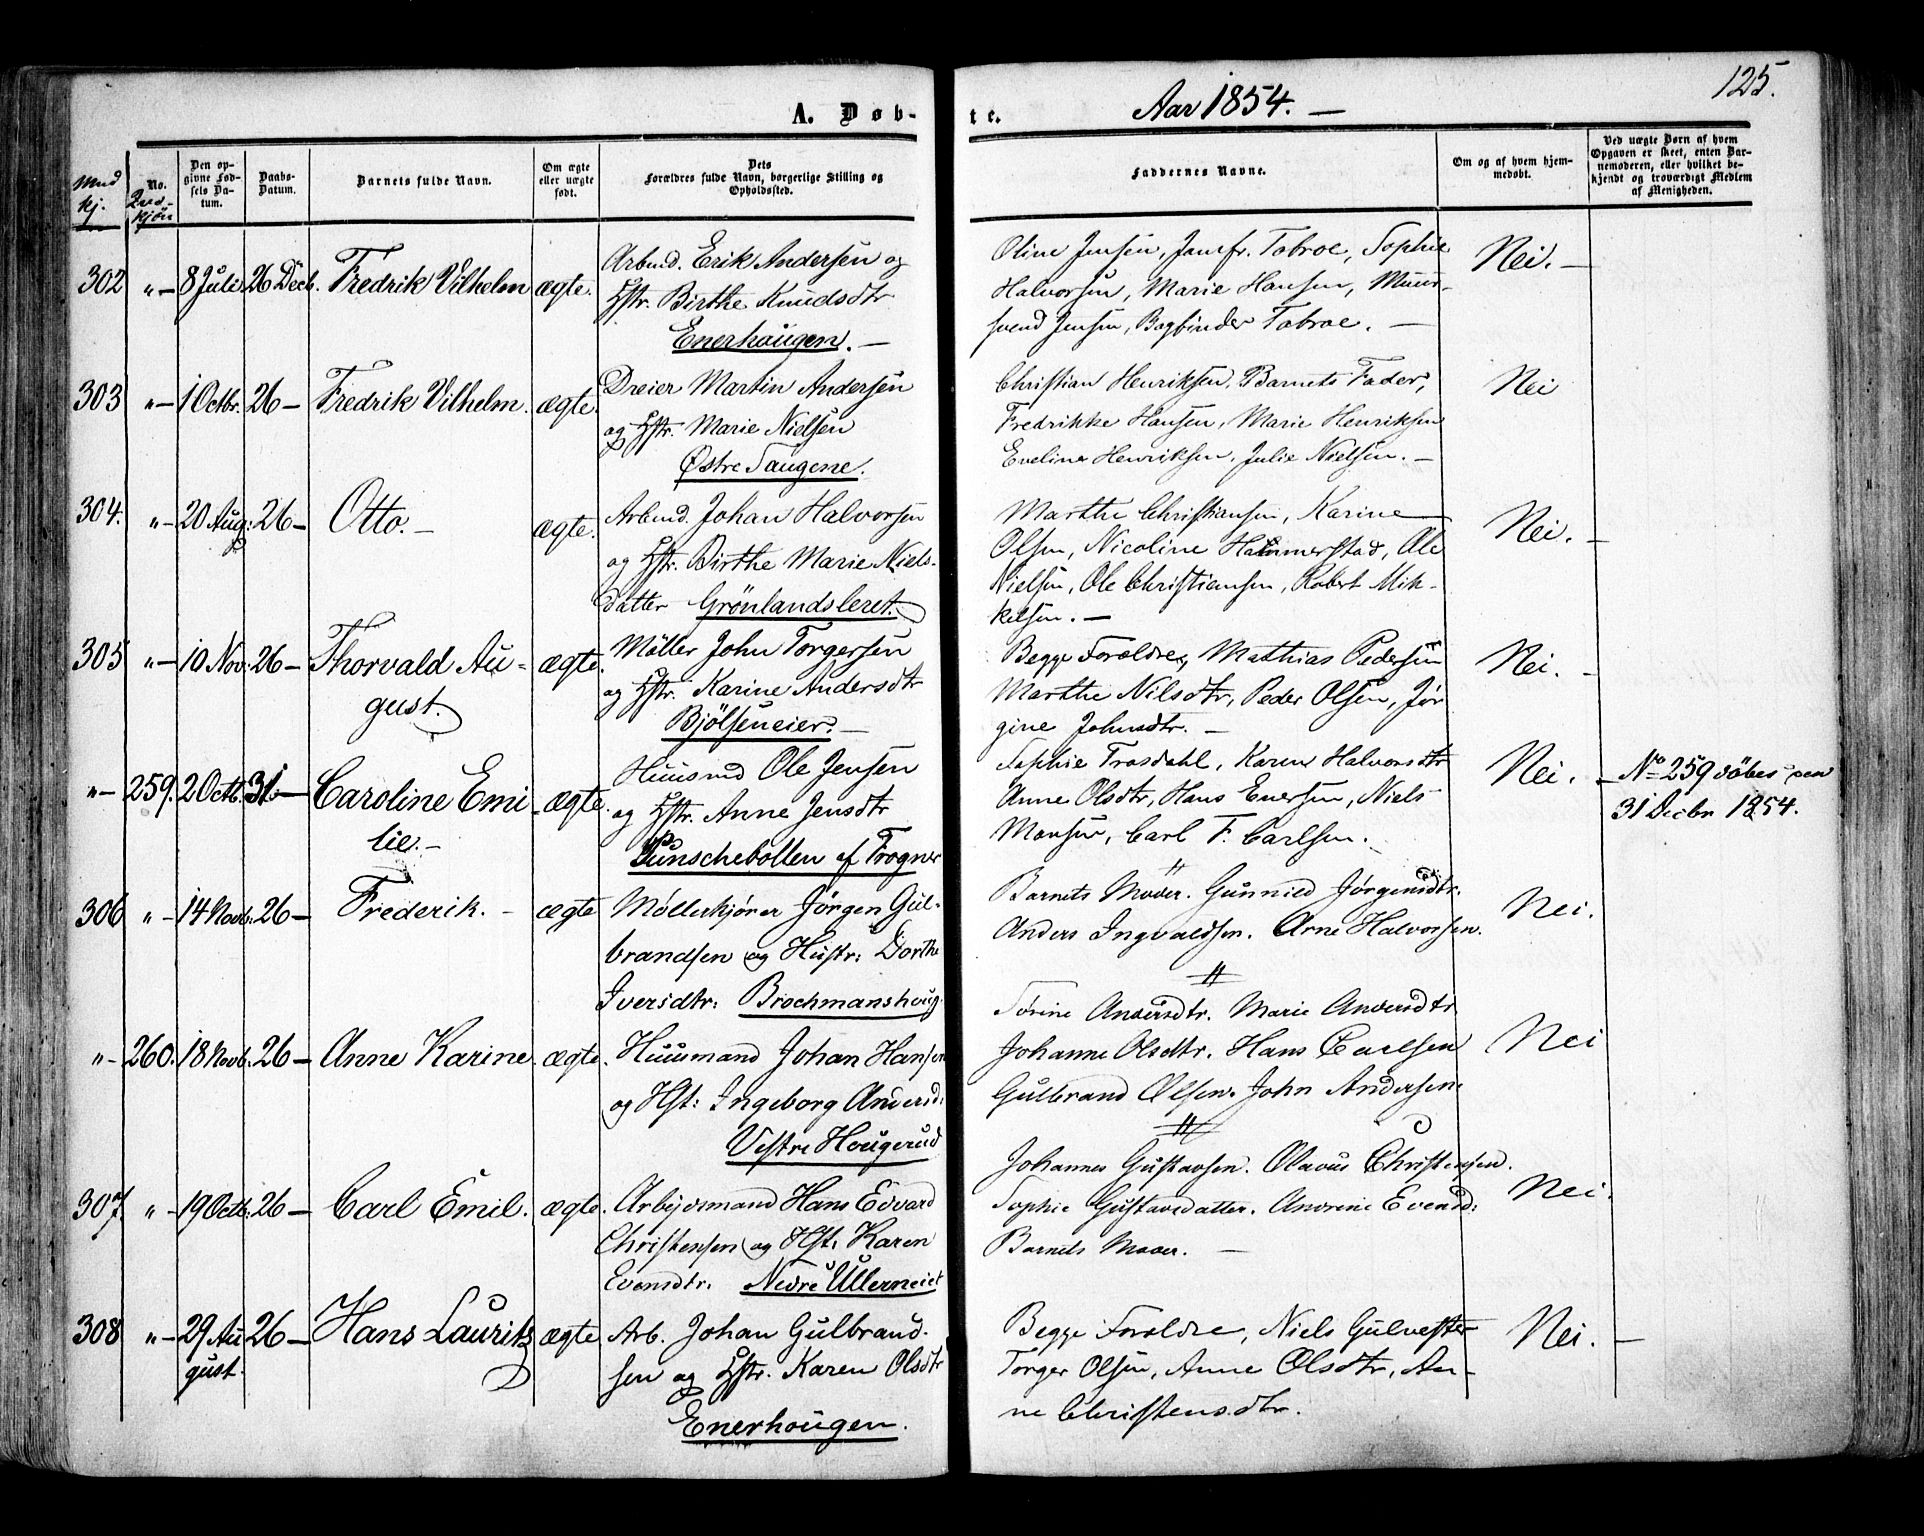 125.
A. Døb-
te.
Aar 1854. —
Mnd kj.
No.
Qvd-
kjön
Den op-
givne Fød-
sels Da-
tum.
Daabs-
Datum.
Barnets fulde Navn.
Om ægte
eller uægte
født.
Dets
Forældres fulde Navn, borgerlige Stilling og
Opholdssted.
Faddernes Navne.
Om og af hvem hjem-
medøbt.
Ved uægte Børn af hvem
Opgaven er skeet, enten Bar-
nemoderen, eller hvilket be-
kjendt og troværdigt Medlem
af Menigheden.
302 „— 8 Juli 26 Decb. Fredrik Vilhelm ægte.
Arbmd. Erik Andersen og
Hstr. Birthe Knudsdtr
Enerhaugen. —
Oline Jensen, Jomfr. Tobroe, Sophie
Halvorsen, Marie Hansen, Muur-
svend Jensen, Bogbinder Tobroe. —
Nei. —
303 „— 1 Octbr. 26 — Fredrik Vilhelm. ægte.
Dreier Martin Andersen
og Hstr. Marie Nielsen
Østre Saugene.
Christian Henriksen, Barnets Fader,
Fredrikke Hansen, Marie Henriksen
Eveline Henriksen, Julie Nielsen. —
Nei
304. „— 20 Aug: 26 — Otto. — ægte.
Arbmd. Johan Halvorsen
og Hstr. Birthe Marie Niels-
datter Grönlandsleret.
Marthe Christiansen, Karine
Olsen, Nicoline Hammerstad, Ole
Nielsen, Ole Christiansen, Robert Mik-
kelsen. —
Nei. —
305 „— 10 Nov: 26 — Thorvald Au-
gust. ægte.
Möller John Torgersen
og Hstr. Karine Andersdtr
Bjölseneier. —
Begge Foræld​re, Mathias Pedersen
Marthe Nilsdtr, Peder Olsen, Jør
gine Johnsdtr. —
Nei. —
„— 259. 2 Octb. 31 — Caroline Emi
lie. — ægte.
Huusmd Ole Jensen
og Hstr. Anne Jensdtr
Punschebollen af Frogner
Sophie Trosdahl, Karen Halvorsdtr
Anne Olsdtr, Hans Enersen, Niels
Monsen, Carl F. Carlsen.
Nei. —
No 259 döbes den
31 Decbr 1854.
306 „— 14 Novb: 26 — Frederik. — ægte
Möllerkjörer Jörgen Gul-
brandsen og Hustr: Dorthe
Iversdtr: Brochmanshoug.
Barnets Moder. Gunnild Jørgensdtr.
Anders Ingvaldsen. Arne Halvorsen.
Nei.
„— 260. 18 Novb. 26 — Anne Karine. ægte.
Huusmand Johan Hansen
og Hst: Ingeborg Andersd:
Vestre Hougerud
Sørine Andersdtr. Marie Andersdtr
Johanne Olsdtr. Hans Carlsen
Gulbrand Olsen. John Andersen.
Nei
307. „— 19 Octb: 26 — Carl Emil. ægte.
Arbejdsmand Hans Edvard
Christensen og Hst: Karen
Evensdtr. Nedre Ullerneiet
Johannes Gustavsen. Olavus Christensen.
Sophie Gustavsdatter. Andrine Evensd:
Barnets Moder. —
Nei.
308 „— 29 Au
gust. 26 — Hans Lauritz ægte
Arb. Johan Gulbrand-
sen og Hstr. Karen Olsdtr
Enerhougen.
Begge Forældre, Niels Gulvester
Torger Olsen, Anne Olsdtr, An-
ne Christensdtr.
Nei. —